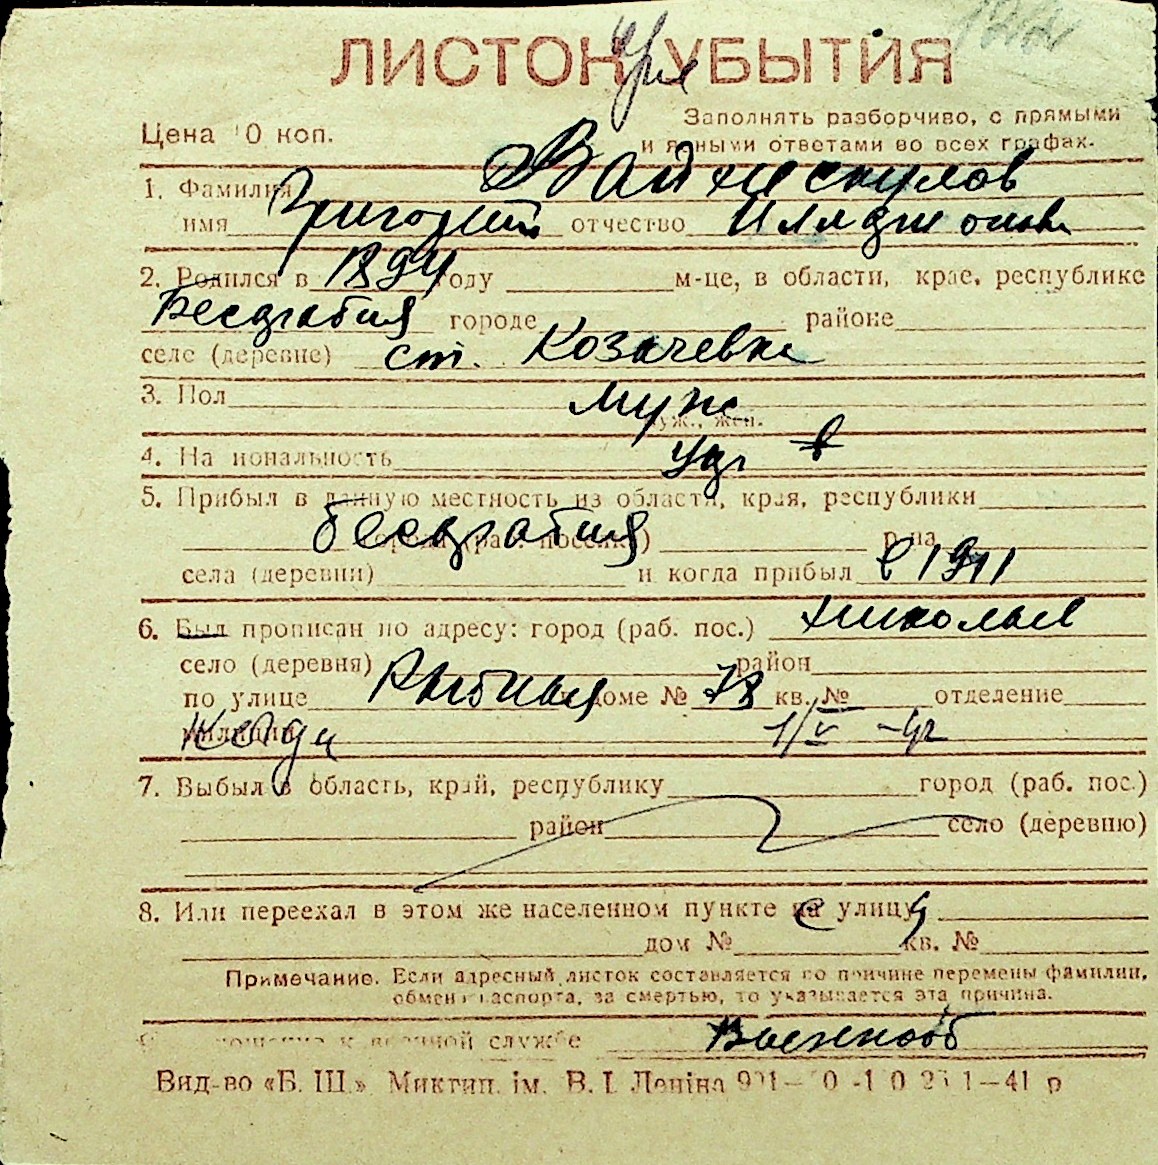 ЛИСТОК УБЫТИЯ
Заполнять разборчиво, с прямыми
Цена 10 коп. и ясными ответами во всех графах.
1. Фамилия
имя Григорий отчество
2. Родился в 1894 году м-це, в области, крае, республике
Бесарабия городе районе
селе (деревне) ст. Козачевка
3. Пол муж
муж., жен.
4. Национальность
5. Прибыл в данную местность из области, края, республики
Бесарабия города (раб. поселка) р-на
села (деревни) и когда прибыл в 1911
6. Был прописан по адресу: город (раб. пос.) Николаев
село (деревня) район
по улице Рыбная в доме № 78 кв. № отделение
милиции 1/V -42
7. Выбыл в область, край, республику город (раб. пос.)
район село (деревню)
8. Или переехал в этом же населенном пункте на улицу
дом № кв. №
Примечание. Если адресный листок составляется по причине перемены фамилии,
обмена паспорта, за смертью, то указывается эта причина.
к военной службе Военнооб
Вид-во «Б. Ш.» Миктип. ім. В. І. Леніна